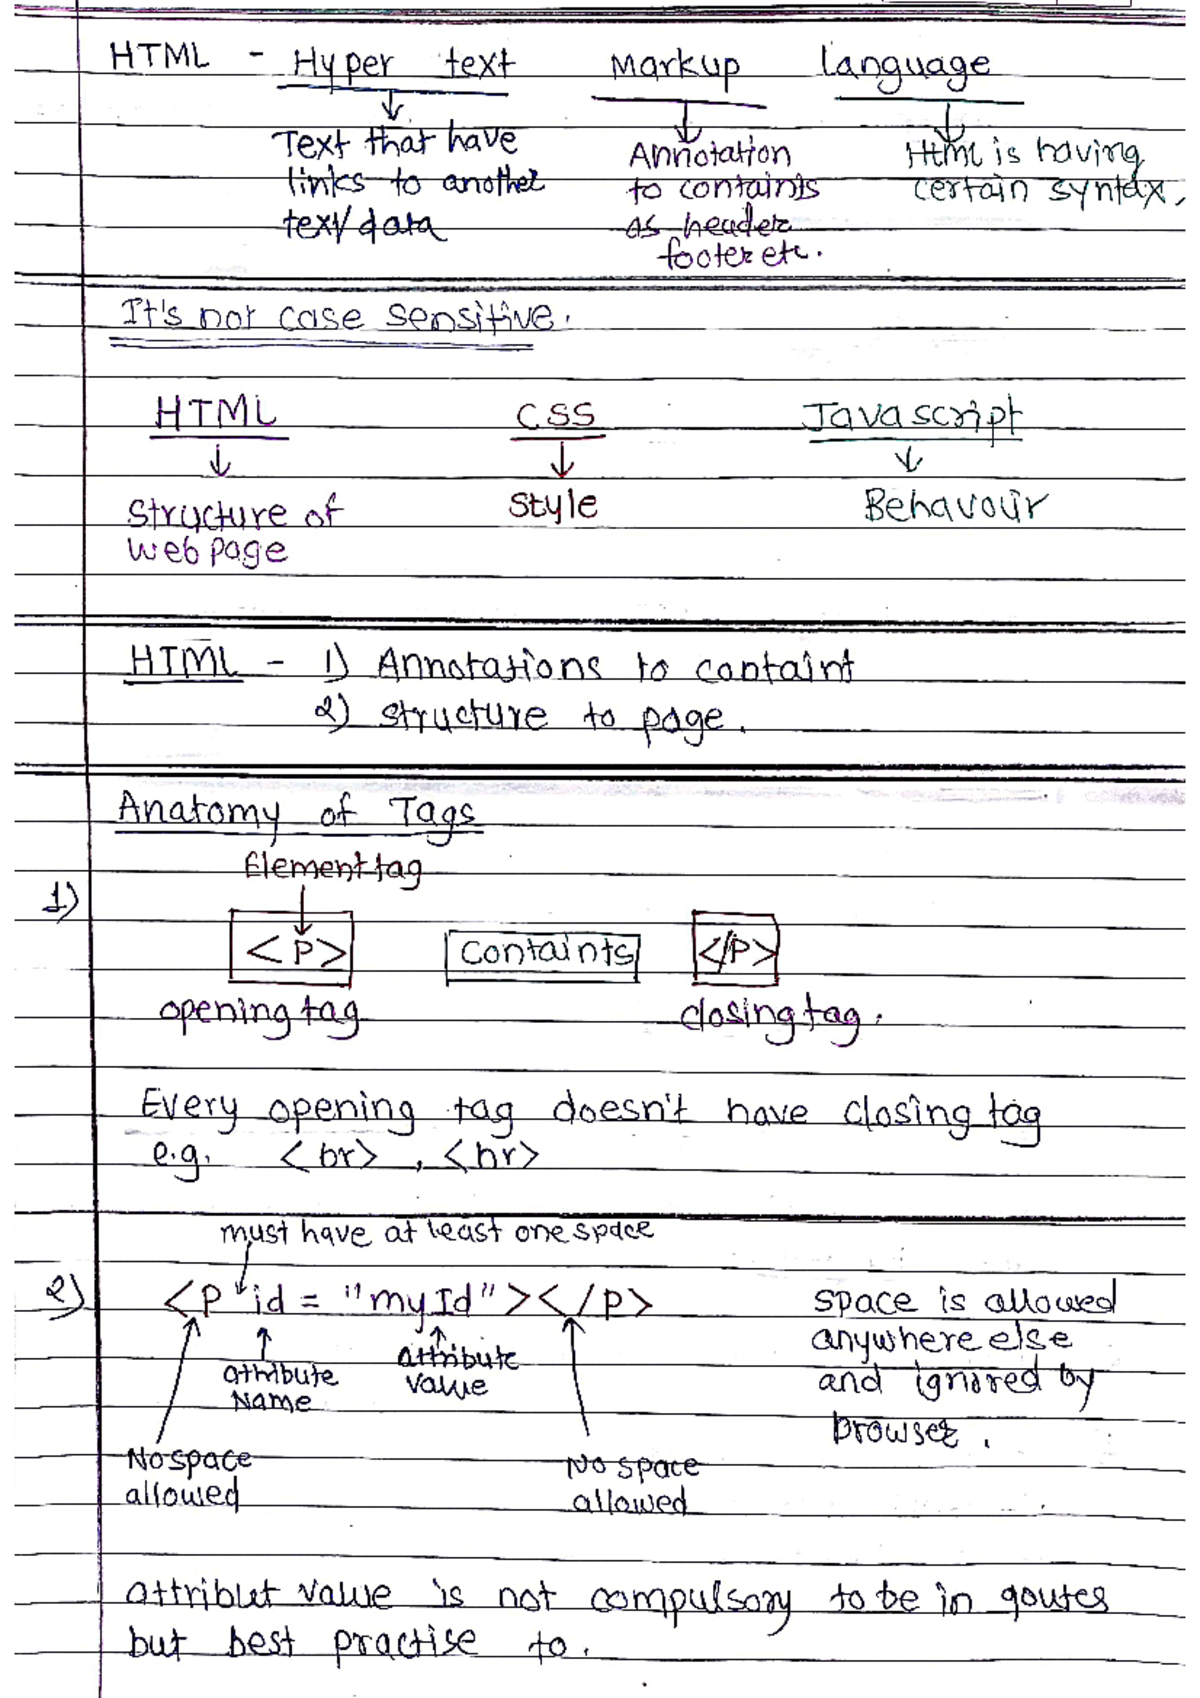 HTML - Hyper text Markup language
Text that have
links to another
text/data
Annotation
to containts
as header
footer etc.
Html is having
certain syntax.
It's not case sensitive.
HTML CSS Javascript
Structure of
web page
Style
Behavour
HTML - 1) Annotations to containt
2) structure to page.
Anatomy of Tags
Element tag
1)
<P> Containts </P>
opening tag closing tag.
Every opening tag doesn't have closing tag
e.g. <br> , <hr>
must have at least one space
2) <P id = "myId"></p>
attribute
Name
attribute
value
No space
allowed
No space
allowed
space is allowed
anywhere else
and ignored by
browser.
attribut value is not compulsory to be in qoutes
but best practise to.